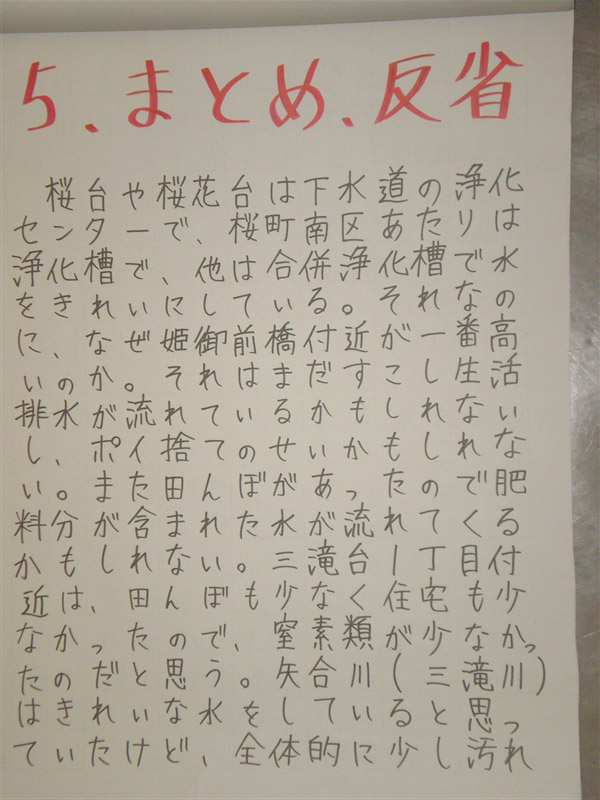 5、まとめ、反省
桜台や桜花台は下水道の浄化
センターで、桜町南区あたりは
浄化槽で、他は合併浄化槽で水
をきれいにしている。それなの
に、なぜ姫御前橋付近が一番高
いのか。それはまだすこし生活
排水が流れているかもしれない
し、ポイ捨てのせいかもしれな
い。また田んぼがあったので肥
料分が含まれた水が流れてくる
かもしれない。三滝台一丁目付
近は、田んぼも少なく住宅も少
なかったので、窒素類が少なかっ
たのだと思う。矢合川(三滝川)
はきれいな水をしていると思っ
ていたけど、全体的に少し汚れ